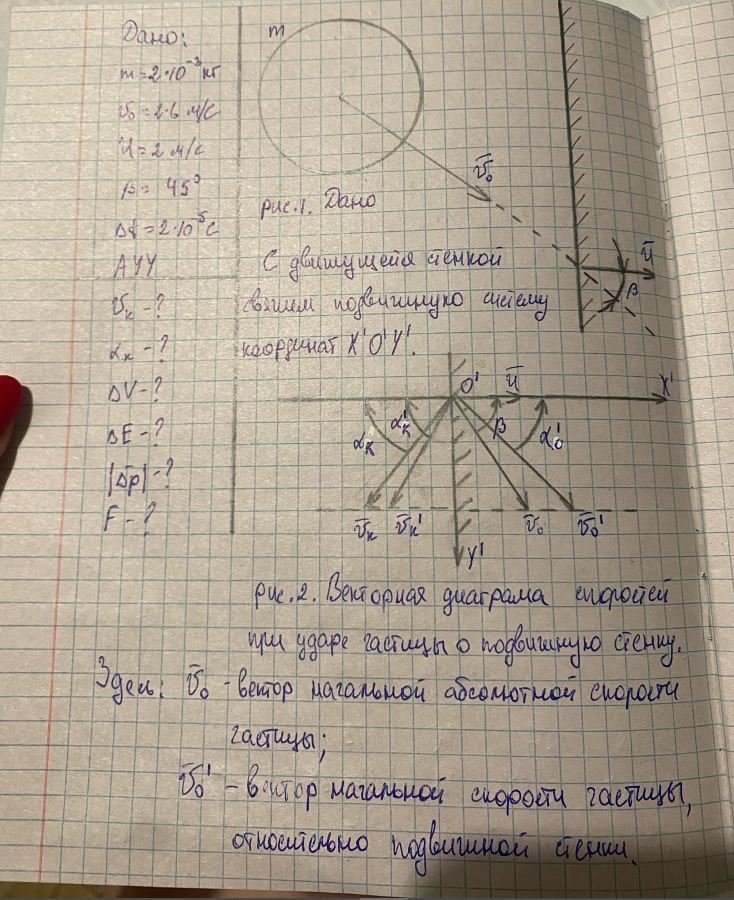 Дано:
m = 2·10⁻³ кг
v̄₀ = 2.6 м/с
ū = 2 м/с
β = 45°
Δt = 2·10⁻⁵ с
АУУ
v̄ₖ - ?
αₖ - ?
ΔV - ?
ΔE - ?
|Δp̄| - ?
F - ?
m
v̄₀
ū
β
рис.1. Дано
С движущейся стенкой
свяжем подвижную систему
координат X'O'Y'.
O' ū X'
αₖ αₖ' β α₀'
v̄ₖ v̄ₖ' v̄₀ v̄₀'
Y'
рис.2. Векторная диаграма скоростей
при ударе частицы о подвижную стенку.
Здесь: v̄₀ - вектор начальной абсолютной скорости
частицы;
v̄₀' - вектор начальной скорости частицы,
относительно подвижной стенки.